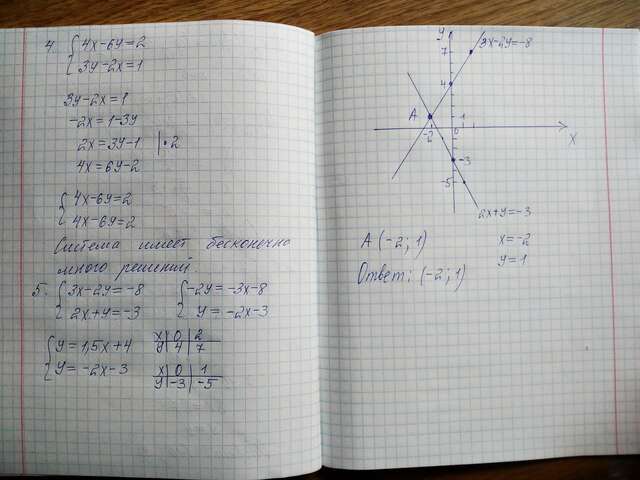 4. { 4x-6y=2
3y-2x=1
3y-2x=1
-2x=1-3y
2x=3y-1 |·2
4x=6y-2
{ 4x-6y=2
4x-6y=2
Система имеет бесконечно
много решений.
5. { 3x-2y=-8 { -2y=-3x-8
2x+y=-3 y=-2x-3
{ y=1,5x+4 x | 0 | 2
y | 4 | 7
y=-2x-3 x | 0 | 1
y | -3 | -5
y
7
3x-2y=-8
4
A
1
-2
0
x
-3
-5
2x+y=-3
A (-2; 1) x=-2
y=1
Ответ: (-2; 1)